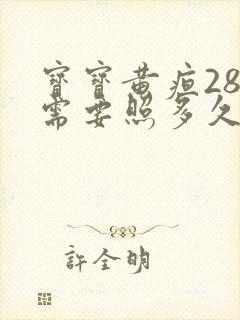 寶寶黃疸28
需要照多久
許全明